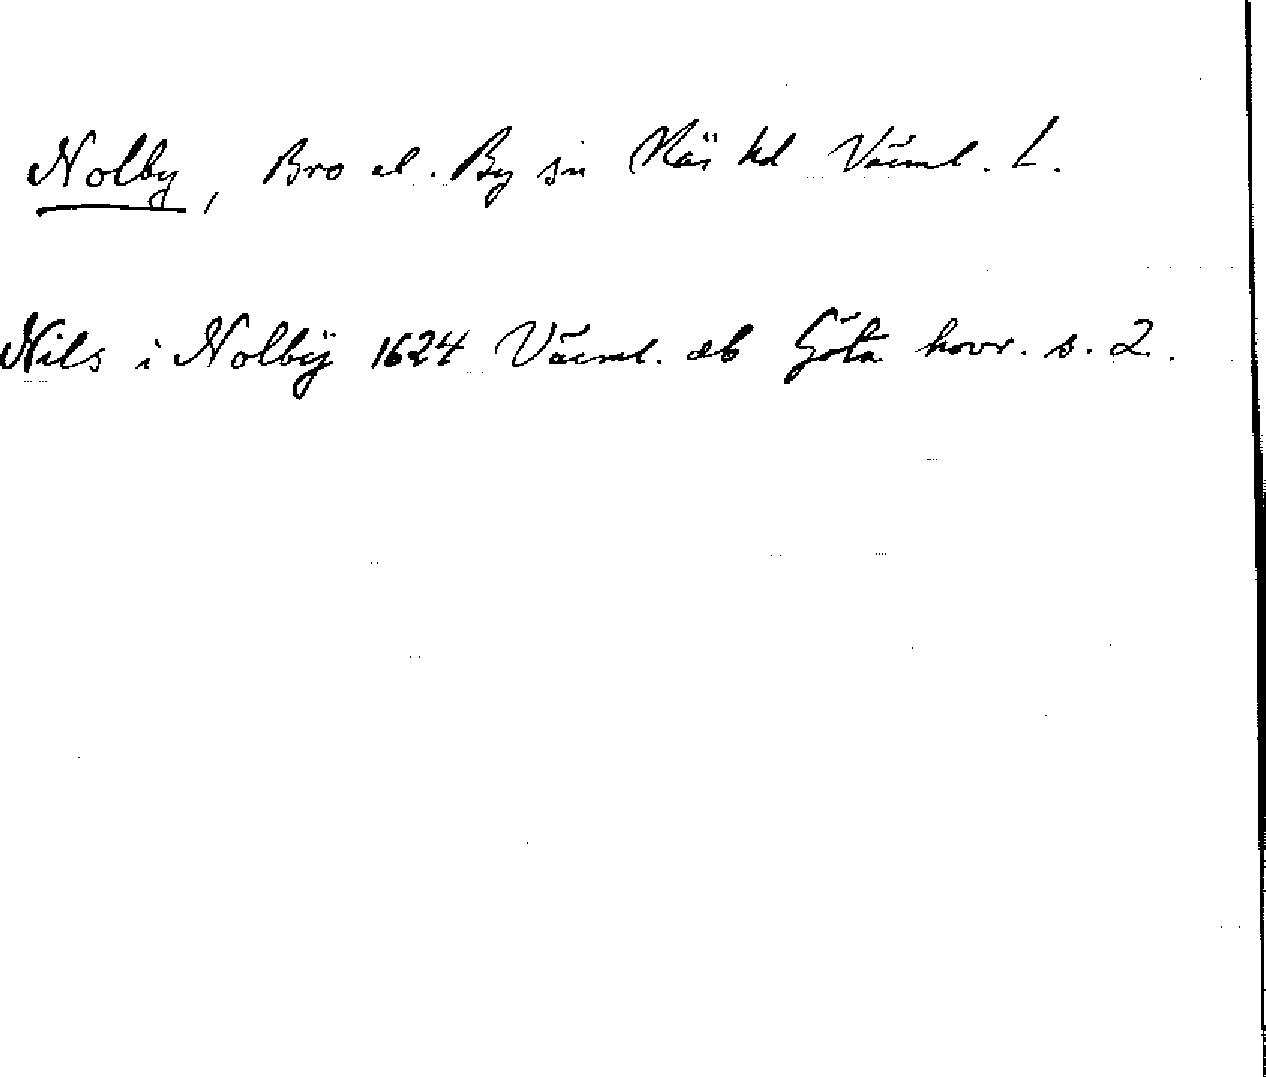 Nolby, Bro el. By sn Näs hd Värml. L.
Nils i Nolbÿ 1624 Värml. db Göta hovr. s. 2.